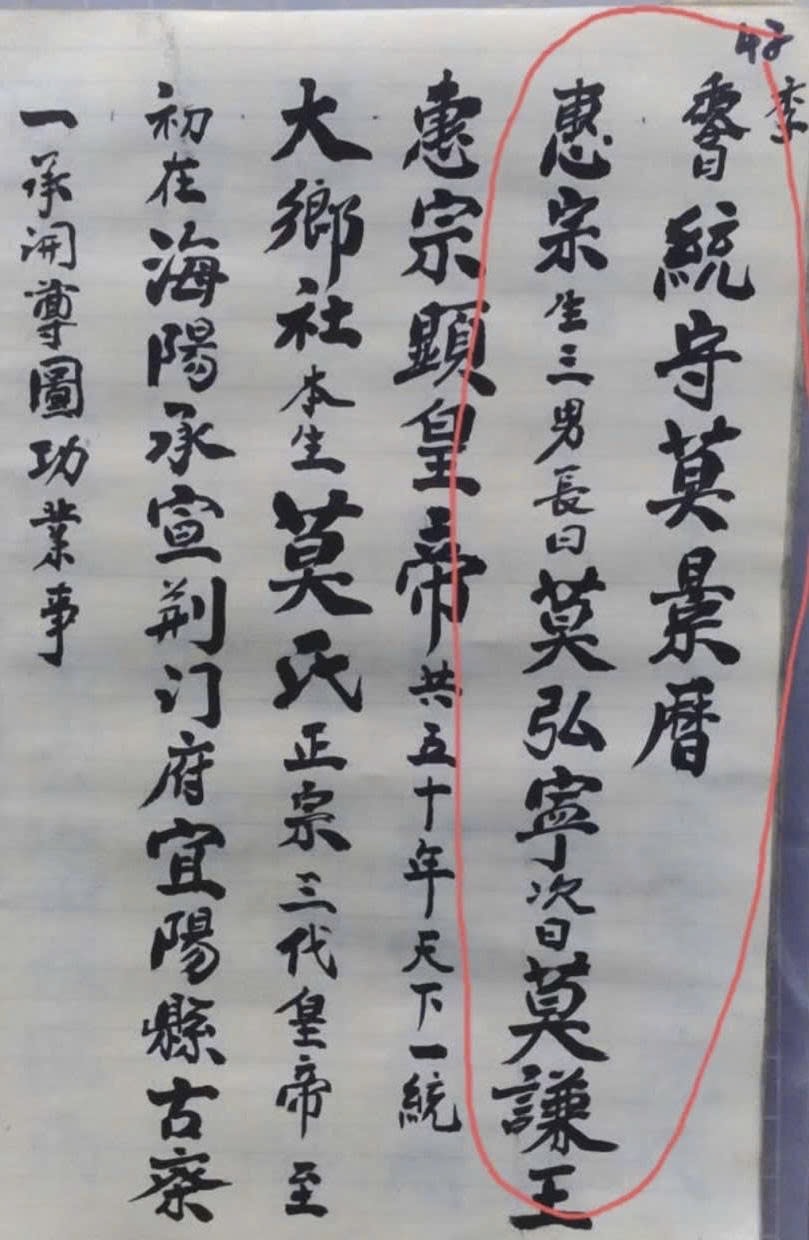 一承開尊圖功業事
初在海陽承宣荆门府宜陽縣古齋
大鄉社本生莫氏正宗三代皇帝至
惠宗顯皇帝共五十年天下一統
惠宗生三男長曰莫弘寧次曰莫謙王
統守莫景暦